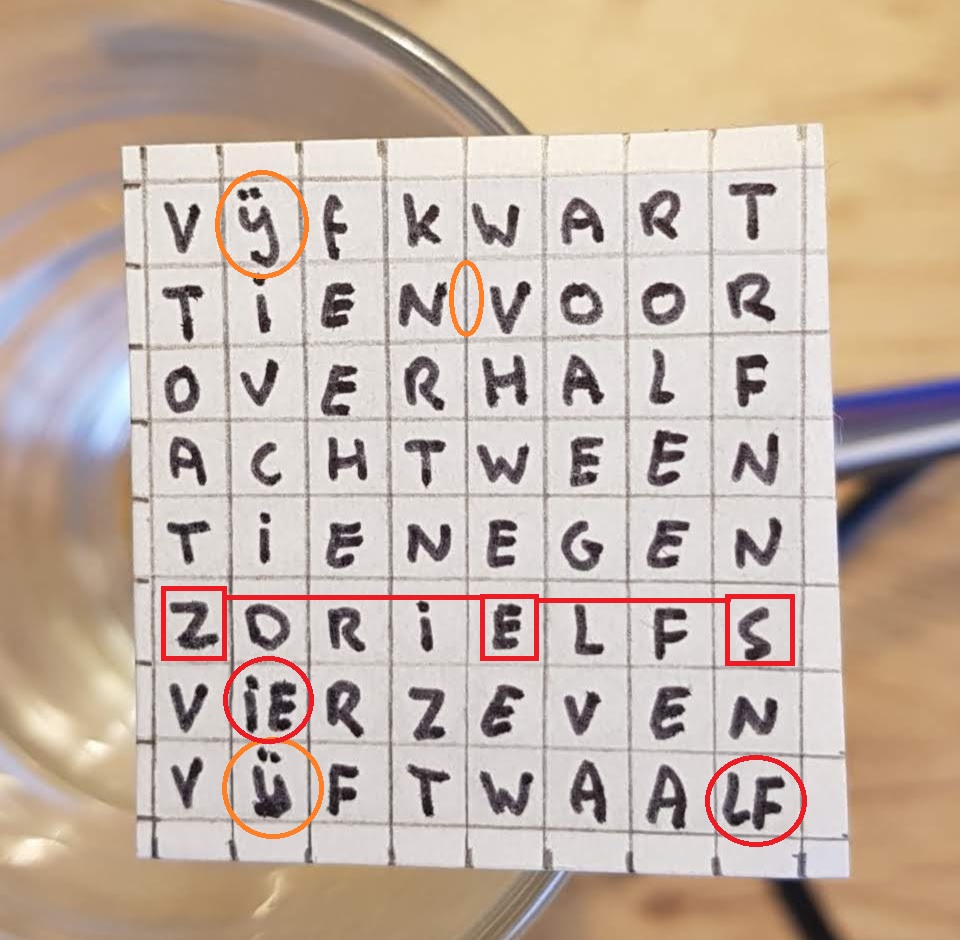 V ÿ F K W A R T
T i E N V O O R
O V E R H A L F
A C H T W E E N
T i E N E G E N
Z D R i E L F S
V iE R Z E V E N
V ÿ F T W A A LF